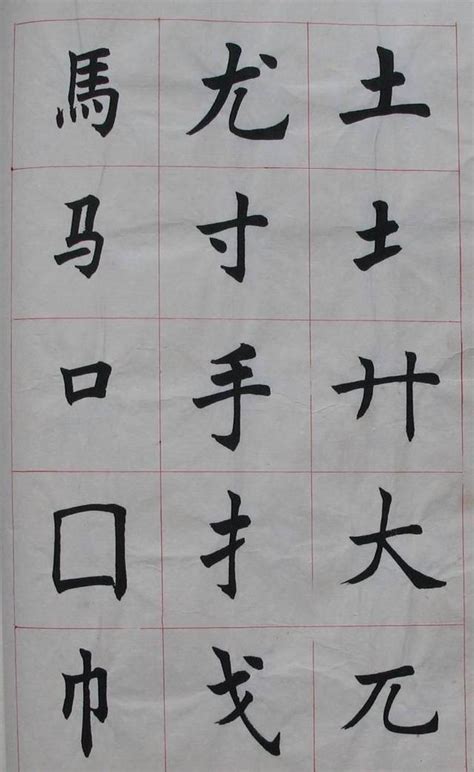 土土廾大兀
尢寸手扌弋
馬马口囗巾